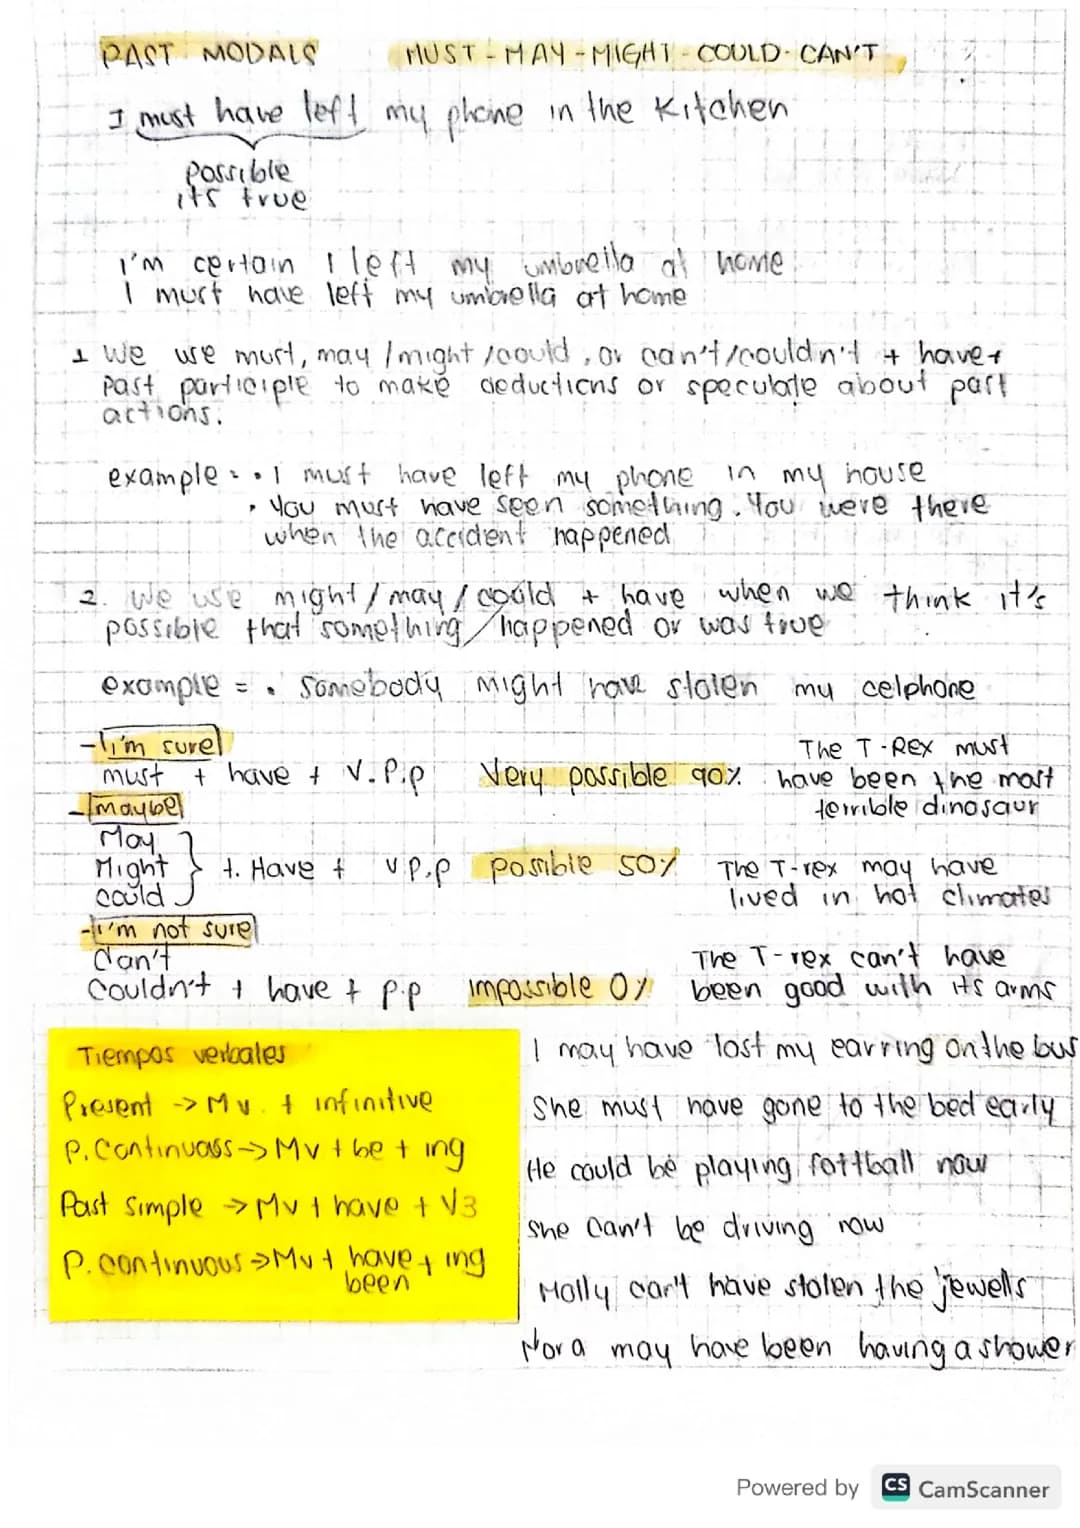 PAST MODALS MUST - MAY - MIGHT - COULD - CAN'T
I must have left my phone in the kitchen
possible
its true
I'm certain I left my umbrella at home
I must have left my umbrella at home
1 We use must, may / might / could, or can't / couldn't + have +
Past participle to make deductions or speculate about past
actions.
example = • I must have left my phone in my house
• You must have seen something. You were there
when the accident happened
2. We use might / may / could + have when we think it's
possible that something / happened or was true
example = • Somebody might have stolen my celphone
- I'm sure
must + have + V.P.p Very possible 90% The T-Rex must
have been the most
terrible dinosaur
- maybe
May
Might
could } + Have + v.p.p possible 50% The T-rex may have
lived in hot climates
- I'm not sure
Can't
Couldn't + have + p.p impossible 0% The T-rex can't have
been good with its arms
Tiempos verbales
Present -> Mv. + infinitive
P. Continuoss -> Mv + be + ing
Past simple -> Mv + have + V3
P. continuous -> Mv + have + ing
been
I may have lost my earring on the bus
She must have gone to the bed early
He could be playing fottball now
She can't be driving now
Molly can't have stolen the jewells
Nora may have been having a shower
Powered by CS CamScanner